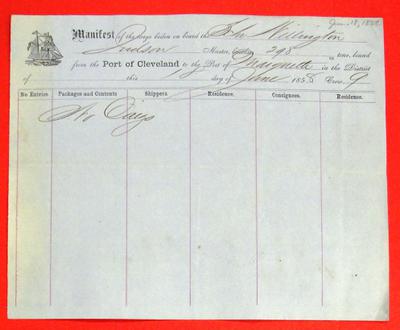 Manifest of the cargo laden on board the Sch Wellington
Master, 298 in tons, bound
from the Port of Cleveland to the Port of Marquette in the District
of this day of June 1858 Crew 9
No Entries Packages and Contents Shippers. Residence. Consignees. Residence.
No Cargo